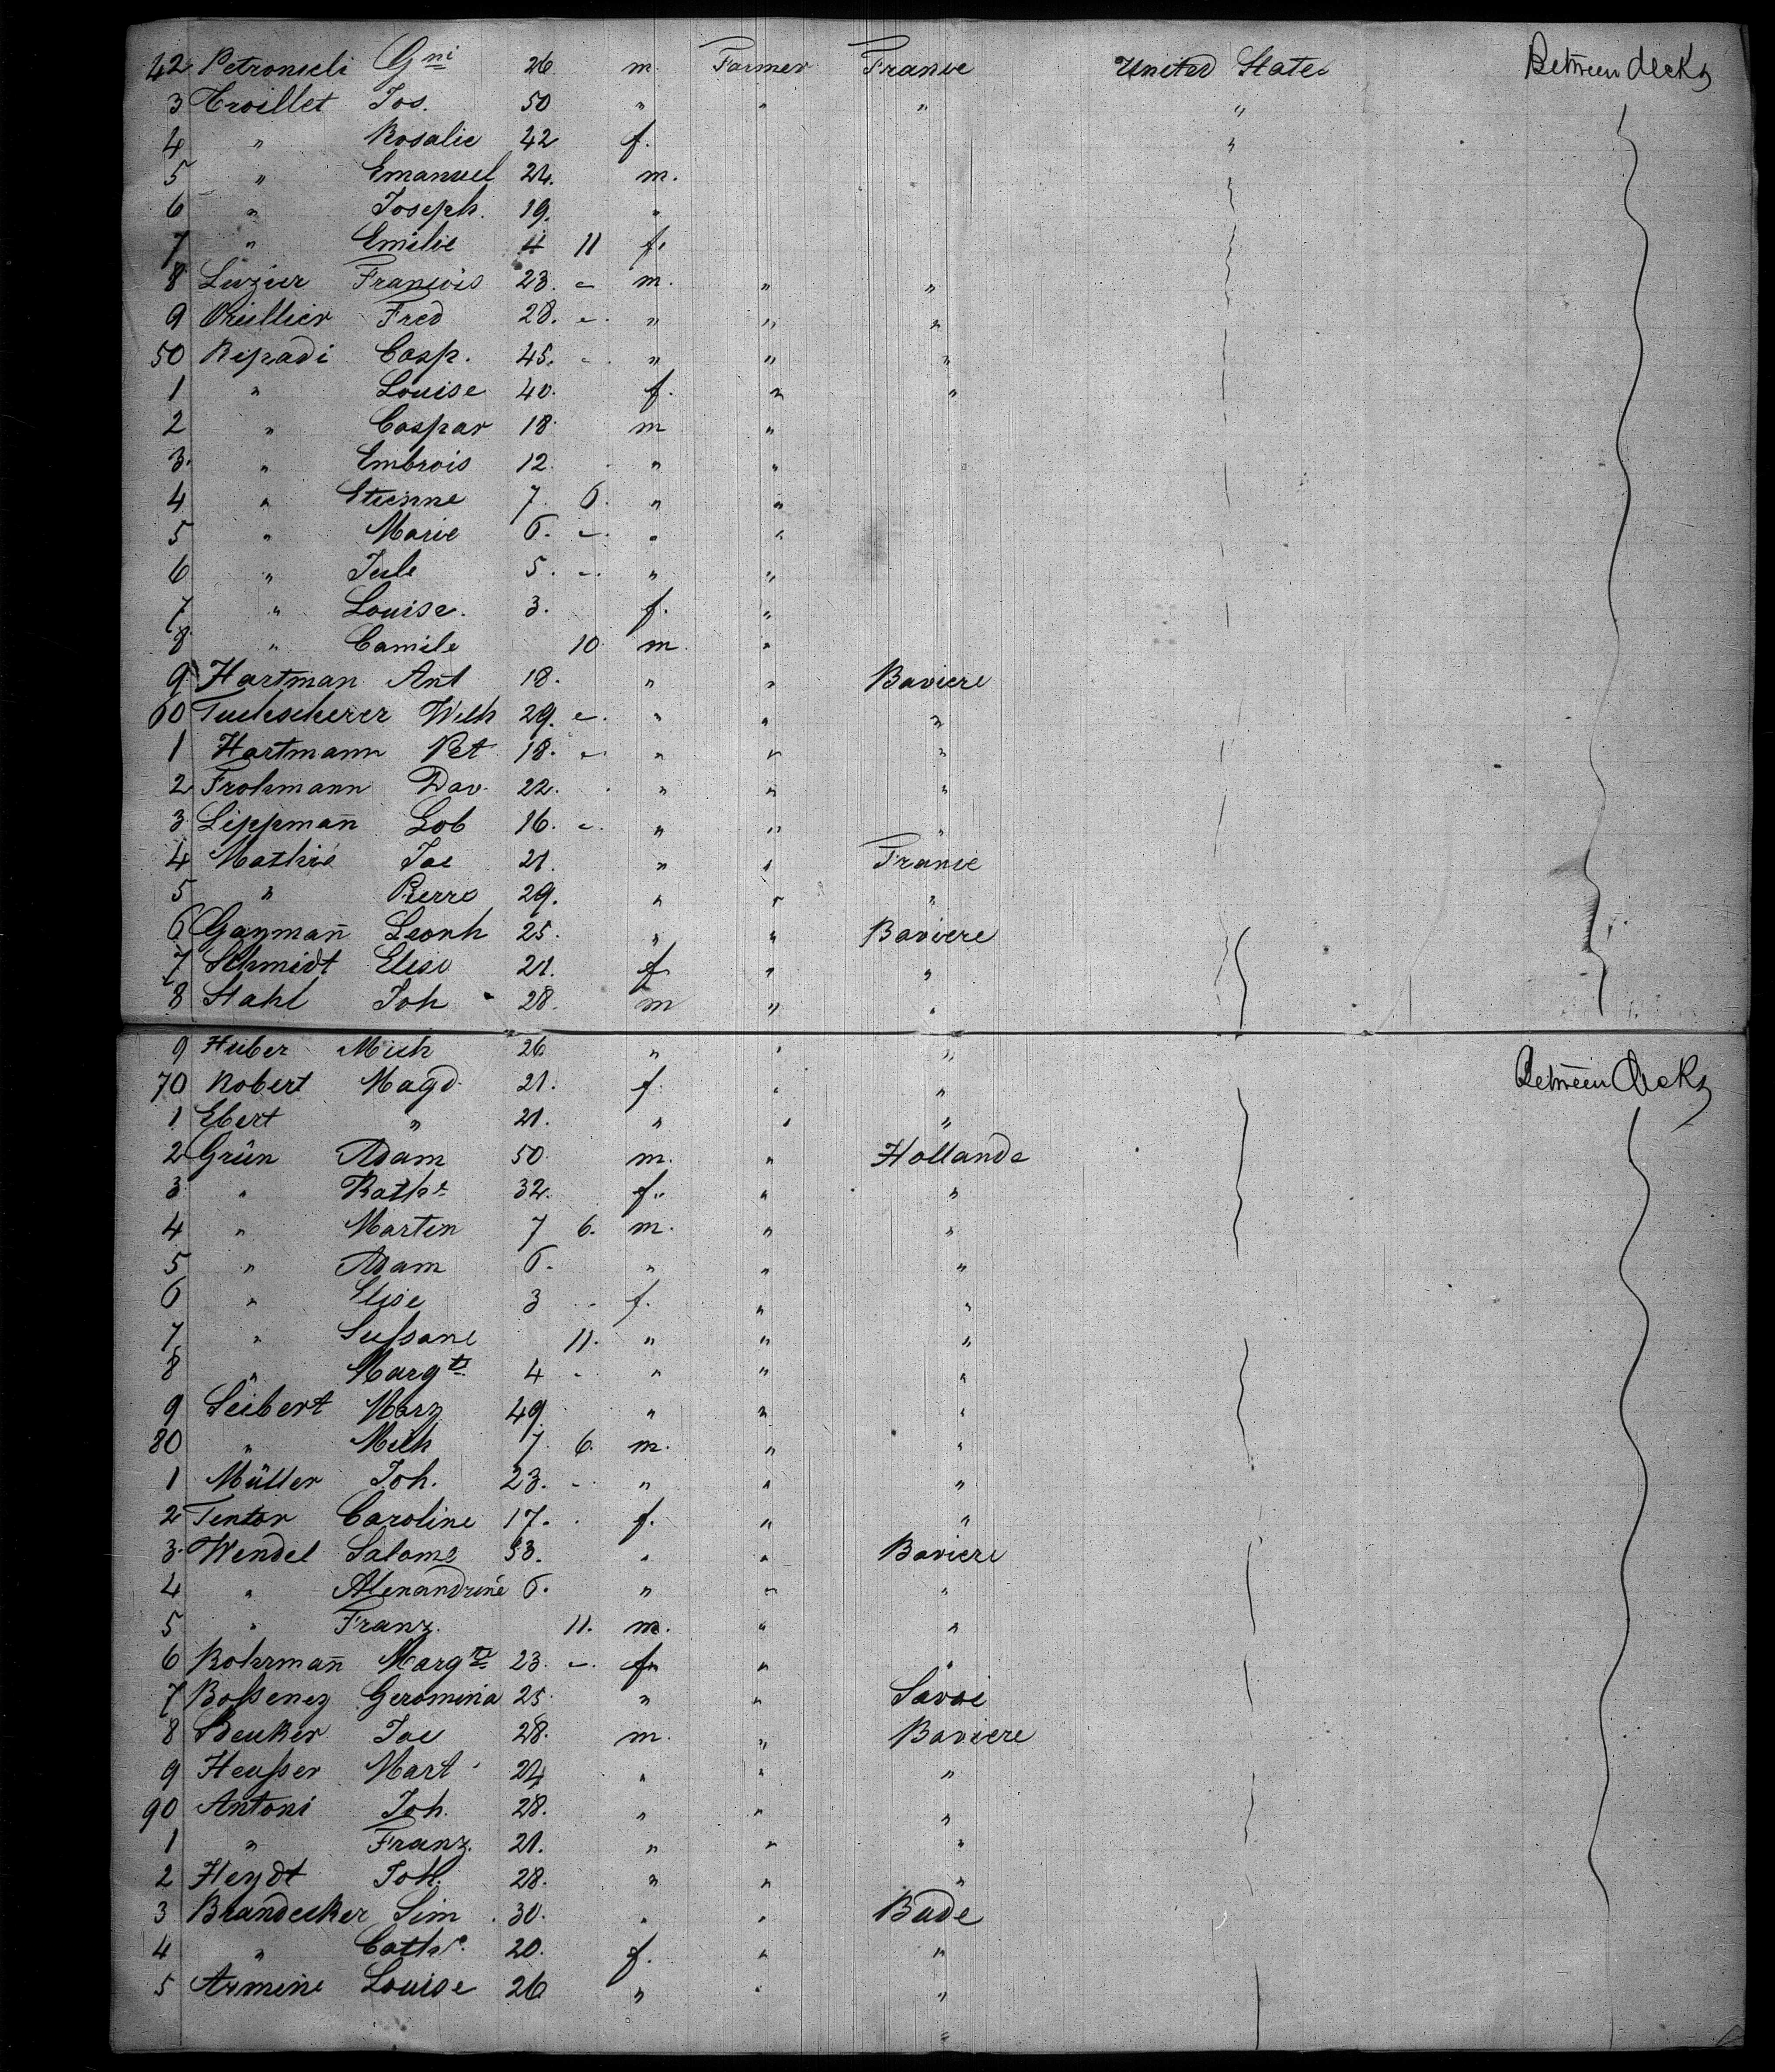 42 Petronseli Gni 26 m. Farmer France United States Between decks
3 Troillet Jos. 50 " " " "
4 " Rosalie 42 f. "
5 " Emanuel 24. m.
6 " Joseph. 19. "
7 " Emilie 4 11 f.
8 Luzier François 23. - m. " "
9 Fred 28. - " " "
50 Repadi Casp. 45. - " " "
1 " Louise 40. f. " "
2 " Caspar 18. m "
3. " Embrois 12. " "
4 " Etienne 7. 6. " "
5 " Marie 6. - " "
6 " Jule 5. - " "
7 " Louise. 3. f. "
8 " Camile 10. m. "
9 Hartman Ant 18. " " Baviere
60 Tuchscherer Wilh 29. - " " "
1 Hartmann Pet 18. - " " "
2 Frohmann Dav. 22. " " "
3 Lippman̄ Lob 16. - " " "
4 Mathie Jac 21. " " France
5 " Pierre 29. " " "
6 Gayman̄ Leonh 25. " " Baviere
7 Schmidt Elise 21. f. " "
8 Stahl Joh 28. m " "
9 Huber Mich 26 " " "
70 Robert Magd. 21. f. " " Between decks
1 Ebert " 21. " " "
2 Grün Adam 50. m. " Hollande
3 " Kathe 32. f. " "
4 " Martin 7 6. m. " "
5 " Adam 6. " " "
6 " Elise 3 - f. " "
7 " Sussane 11. " " "
8 " Margt 4 - " " "
9 Seibert Marg 49 " " "
80 " Mich 7. 6. m. " "
1 Müller Joh. 23. - " " "
2 Tentor Caroline 17. f. " "
3. Wendel Salome 53. " " Baviere
4 " Alexandrine 6. " " "
5 " Franz. 11. m. " "
6 Rohrman̄ Margt 23. - f. " "
7 Bossenez Geromina 25. " " Savoi
8 Beuker Jac 28. m. " Baviere
9 Heusser Mart 24 " " "
90 Antoni Joh. 28. " " "
1 " Franz. 21. " " "
2 Heydt Joh. 28. " " "
3 Brandecker Sim. 30. " " Bade
4 " Cathe. 20. f. " "
5 Armine Louise 26 " " "